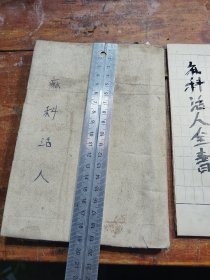 麻科活人
麻科活人全書